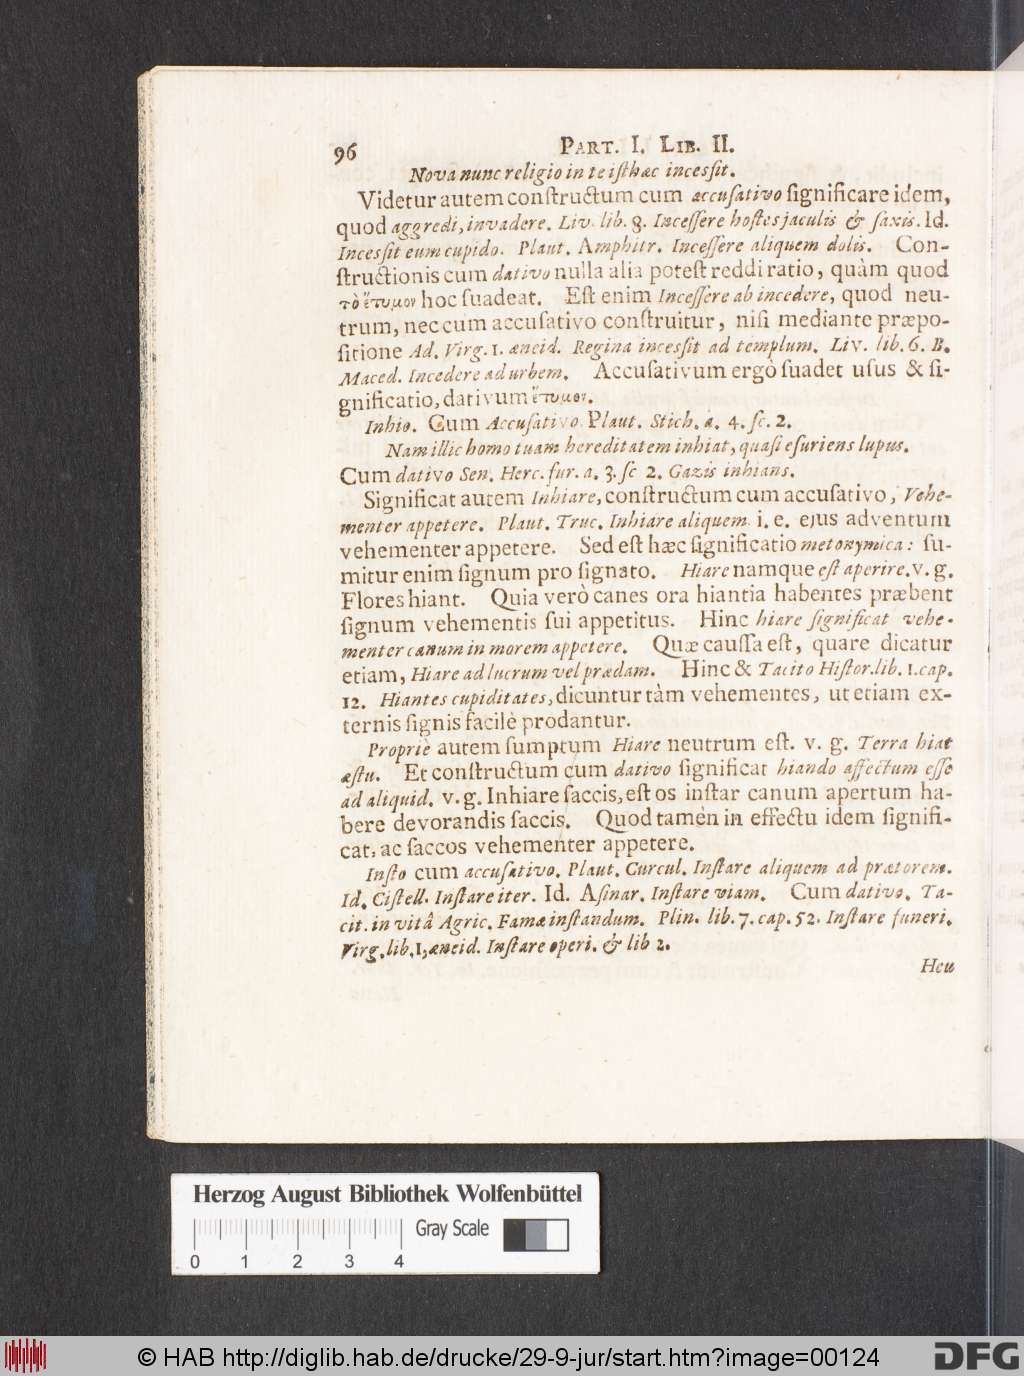 96 PART. I. LIB. II.
Nova nunc religio in te iſthæc inceſſit.
Videtur autem conſtructum cum accuſativo ſignificare idem,
quod aggredi, invadere. Liv. lib. 8. Inceſſere hoſtes jaculis & ſaxis. Id.
Inceſſit eum cupido. Plaut. Amphitr. Inceſſere aliquem dolis. Con-
ſtructionis cum dativo nulla alia poteſt reddi ratio, quàm quod
τὸ ἔτυμον hoc ſuadeat. Eſt enim Inceſſere ab incedere, quod neu-
trum, nec cum accuſativo conſtruitur, niſi mediante præpo-
ſitione Ad. Virg. 1. æneid. Regina inceſſit ad templum. Liv. lib. 6. B.
Maced. Incedere ad urbem. Accuſativum ergò ſuadet uſus & ſi-
gnificatio, dativum ἔτυμον.
Inhio. Cum Accuſativo Plaut. Stich. a. 4. ſc. 2.
Nam illic homo tuam hereditatem inhiat, quaſi eſuriens lupus.
Cum dativo Sen. Herc. fur. a. 3. ſc 2. Gazis inhians.
Significat autem Inhiare, conſtructum cum accuſativo, Vehe-
menter appetere. Plaut. Truc. Inhiare aliquem i. e. ejus adventum
vehementer appetere. Sed eſt hæc ſignificatio metonymica: ſu-
mitur enim ſignum pro ſignato. Hiare namque eſt aperire. v. g.
Flores hiant. Quia verò canes ora hiantia habentes præbent
ſignum vehementis ſui appetitus. Hinc hiare ſignificat vehe-
menter canum in morem appetere. Quæ cauſſa eſt, quare dicatur
etiam, Hiare ad lucrum vel prædam. Hinc & Tacito Hiſtor. lib. 1. cap.
12. Hiantes cupiditates, dicuntur tàm vehementes, ut etiam ex-
ternis ſignis facilè prodantur.
Propriè autem ſumptum Hiare neutrum eſt. v. g. Terra hiat
æſtu. Et conſtructum cum dativo ſignificat hiando affectum eſſe
ad aliquid. v. g. Inhiare ſaccis, eſt os inſtar canum apertum ha-
bere devorandis ſaccis. Quod tamèn in effectu idem ſignifi-
cat, ac ſaccos vehementer appetere.
Inſto cum accuſativo. Plaut. Curcul. Inſtare aliquem ad prætorem.
Id. Ciſtell. Inſtare iter. Id. Aſinar. Inſtare viam. Cum dativo. Ta-
cit. in vitâ Agric. Famæ inſtandum. Plin. lib. 7. cap. 52. Inſtare funeri.
Virg. lib. 1, æneid. Inſtare operi. & lib 2.
Heu
Herzog August Bibliothek Wolfenbüttel
Gray Scale
0 1 2 3 4
© HAB http://diglib.hab.de/drucke/29-9-jur/start.htm?image=00124
DFG